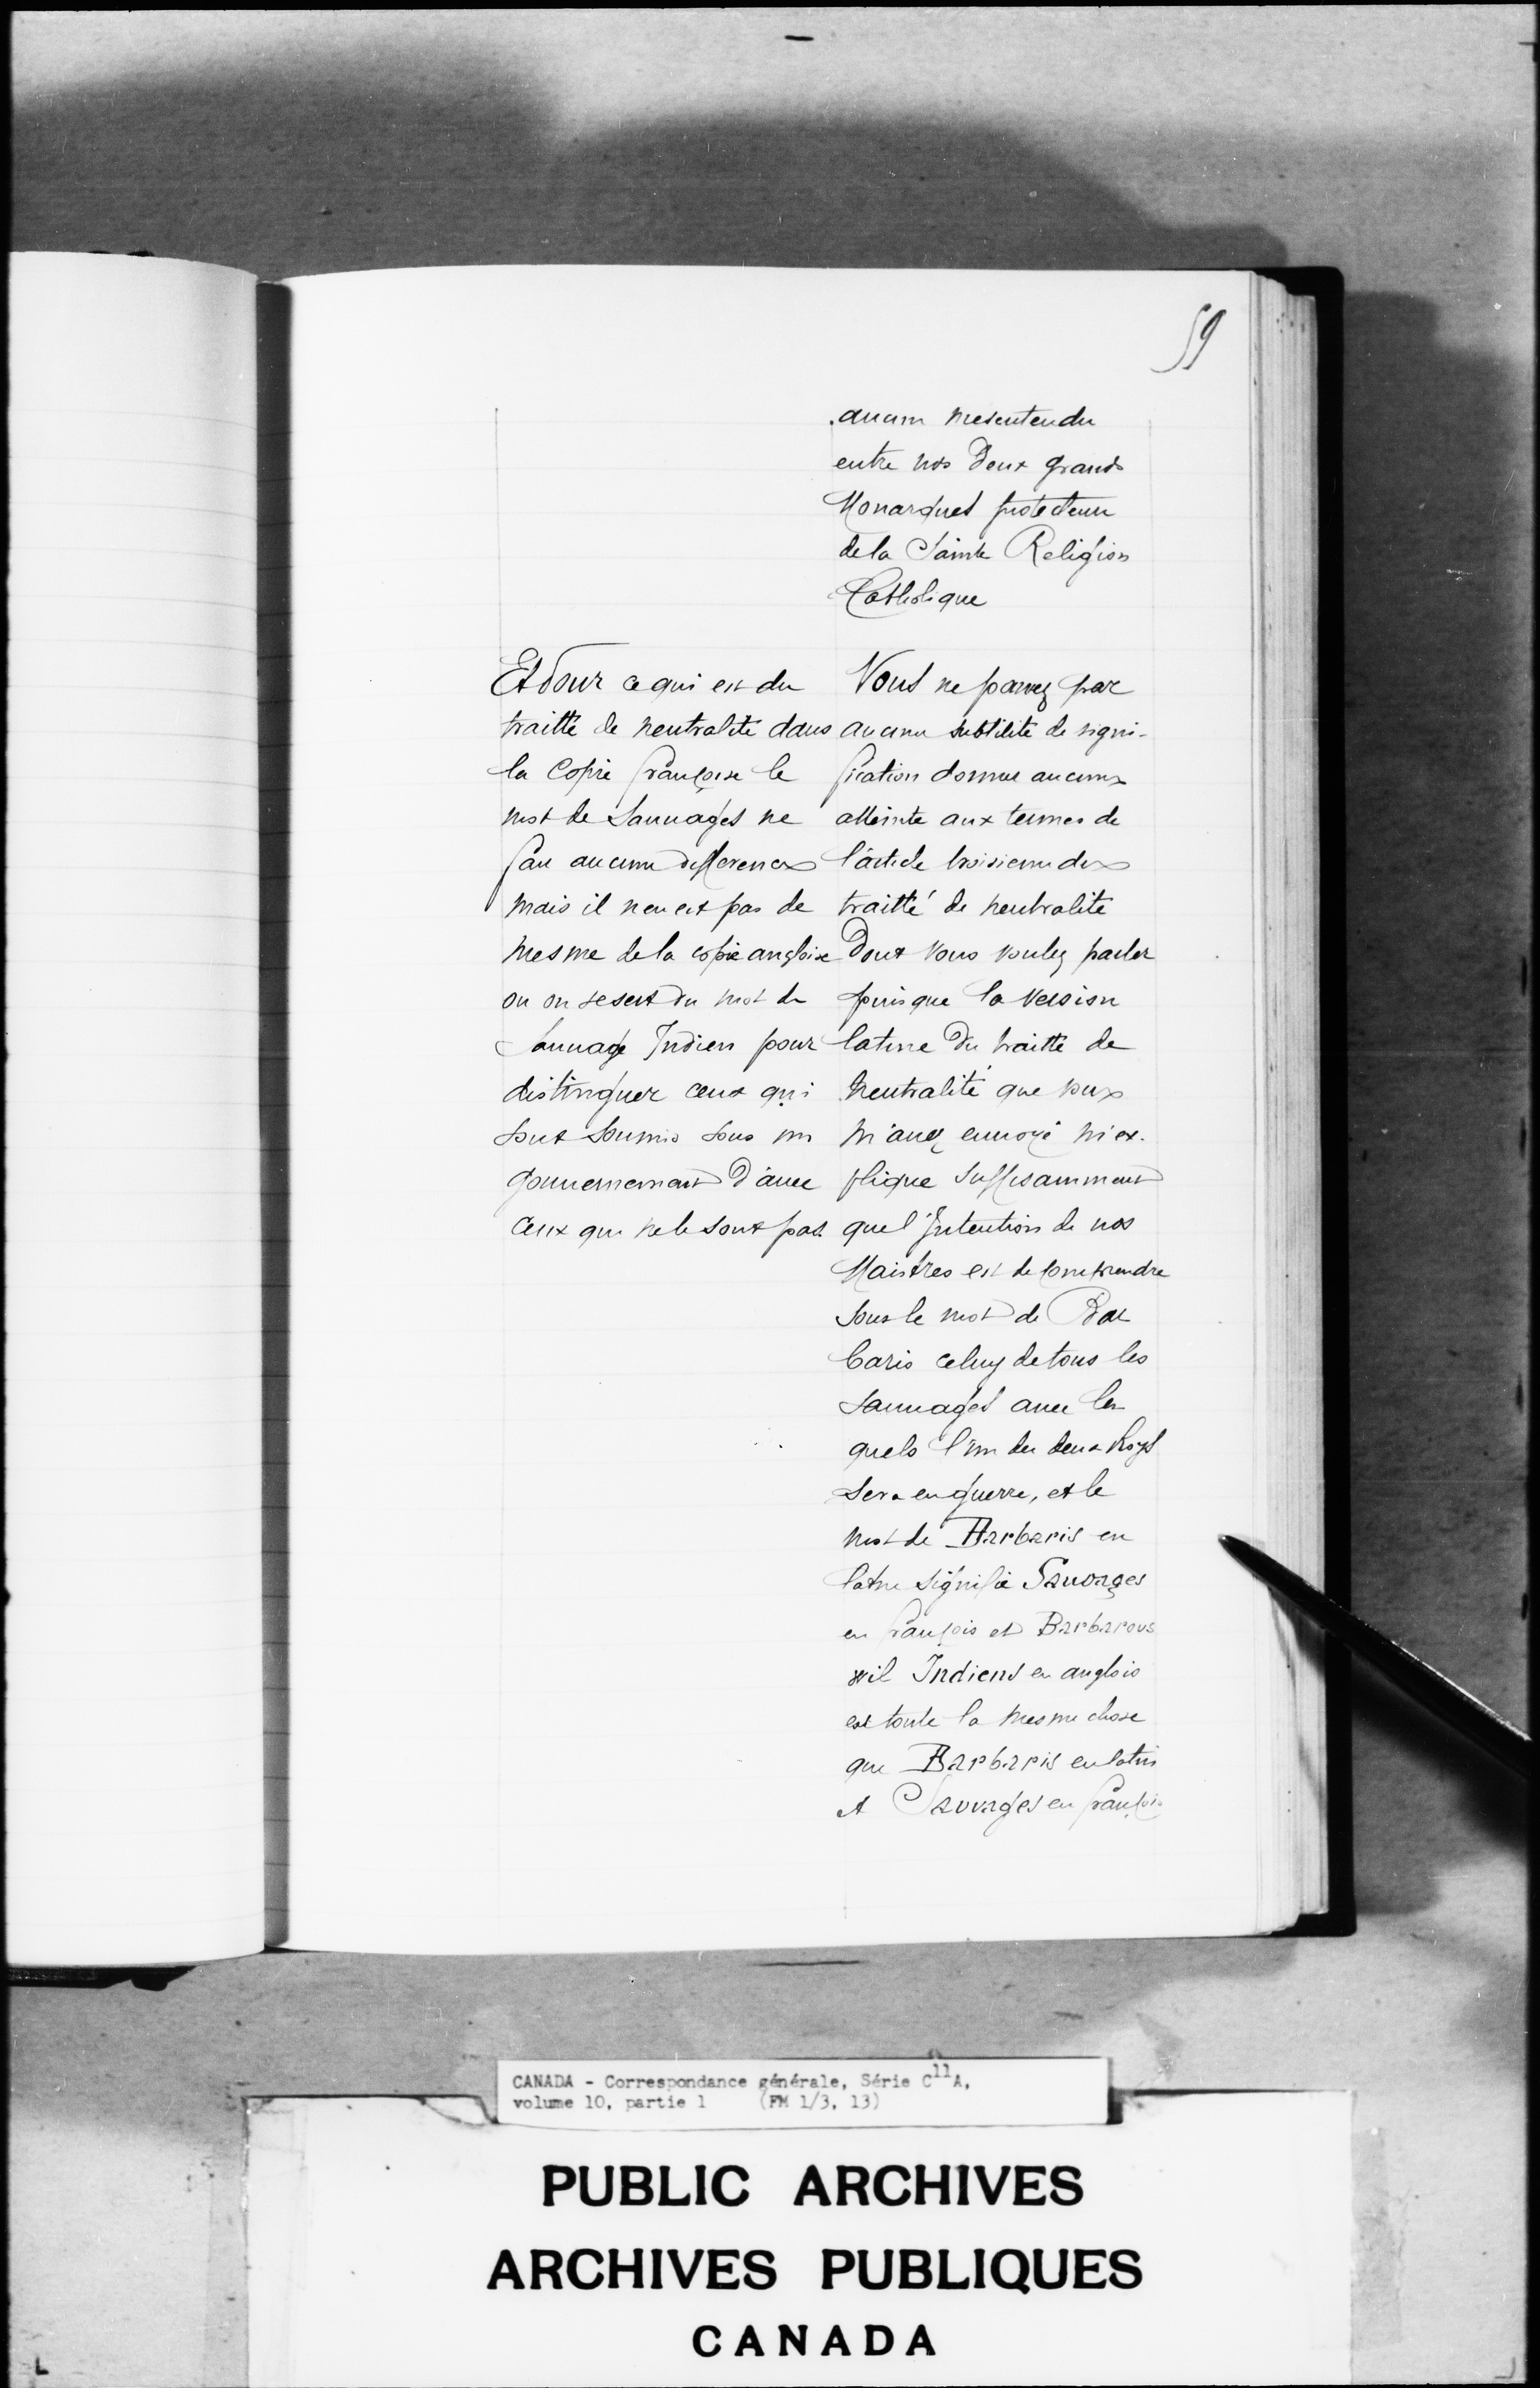 59
aucun mesentendu
entre nos Deux grands
Monarques protecteurs
de la Sainte Religion
Catholique
Et pour ce qui est du
traitte de neutralite dans
la Copie françoise le
mot de Sauuages ne
fait aucune difference
mais il n'en est pas de
mesme de la copie angloise
ou on se sert du mot de
Sauuage Indien pour
distinguer ceux qui
sont soumis sous un
gouuernement D'auec
ceux qui ne le sont pas.
Vous ne pouvez par
aucune subtilité de signi-
fication donner aucune
atteinte aux termes de
l'article troisieme du
traitté de neutralité
Dont vous voulez parler
puisque la version
latine du traitté de
neutralité que vous
m'auez enuoyé m'ex-
plique suffisamment
que l'Intention de nos
Maistres est de comprendre
sous le mot de Bar
baris celuy de tous les
sauuages auec les
quels l'un des deux Roys
sera en guerre, et le
mot de Barbaris en
latin signifie Sauvages
en françois et Barbarous
wil Indiens en anglois
est toute la mesme chose
que Barbaris en latin
et Sauvages en françois
CANADA - Correspondance générale, Série C11A,
volume 10, partie 1 (FM 1/3, 13)
PUBLIC ARCHIVES
ARCHIVES PUBLIQUES
CANADA